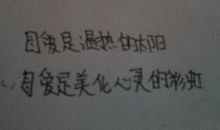 母爱是温热的太阳
母爱是美化心灵的彩虹